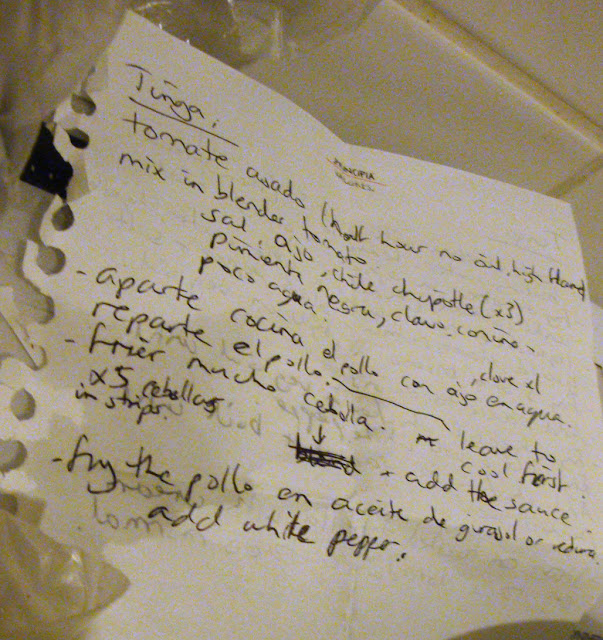 Tinga:
tomate asado (half hour no oil, high flame)
mix in blender tomato.
sal ajo, chile chipotle (x3)
pimienta negra, clavo. comino.
poco agua.
- aparte cocina el pollo con ajo en agua. , clove x1
reparte el pollo. leave to cool first.
- frier mucho cebolla.
x5 cebollas
in strips.
↓
+ add the sauce.
- fry the pollo en aceite de girasol or
add white pepper.